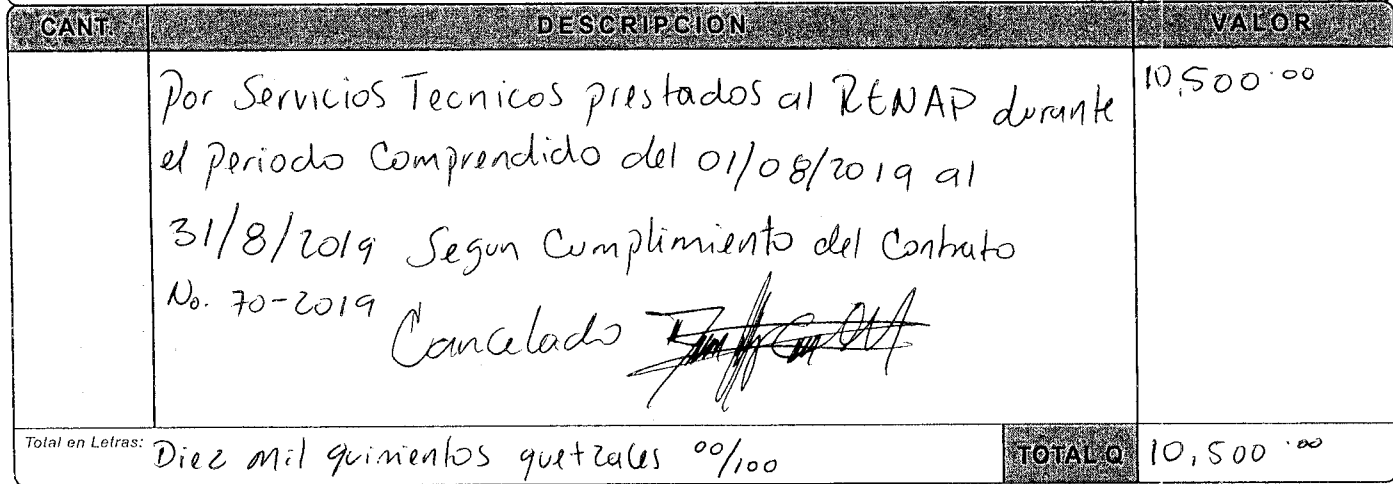 CANT. DESCRIPCION VALOR
Por Servicios Tecnicos prestados al RENAP durante 10,500.00
el Periodo Comprendido del 01/08/2019 al
31/8/2019 Segun Cumplimiento del Contrato
No. 70-2019
Cancelado
Total en Letras: Diez mil quinientos quetzales 00/100 TOTAL Q 10,500.00